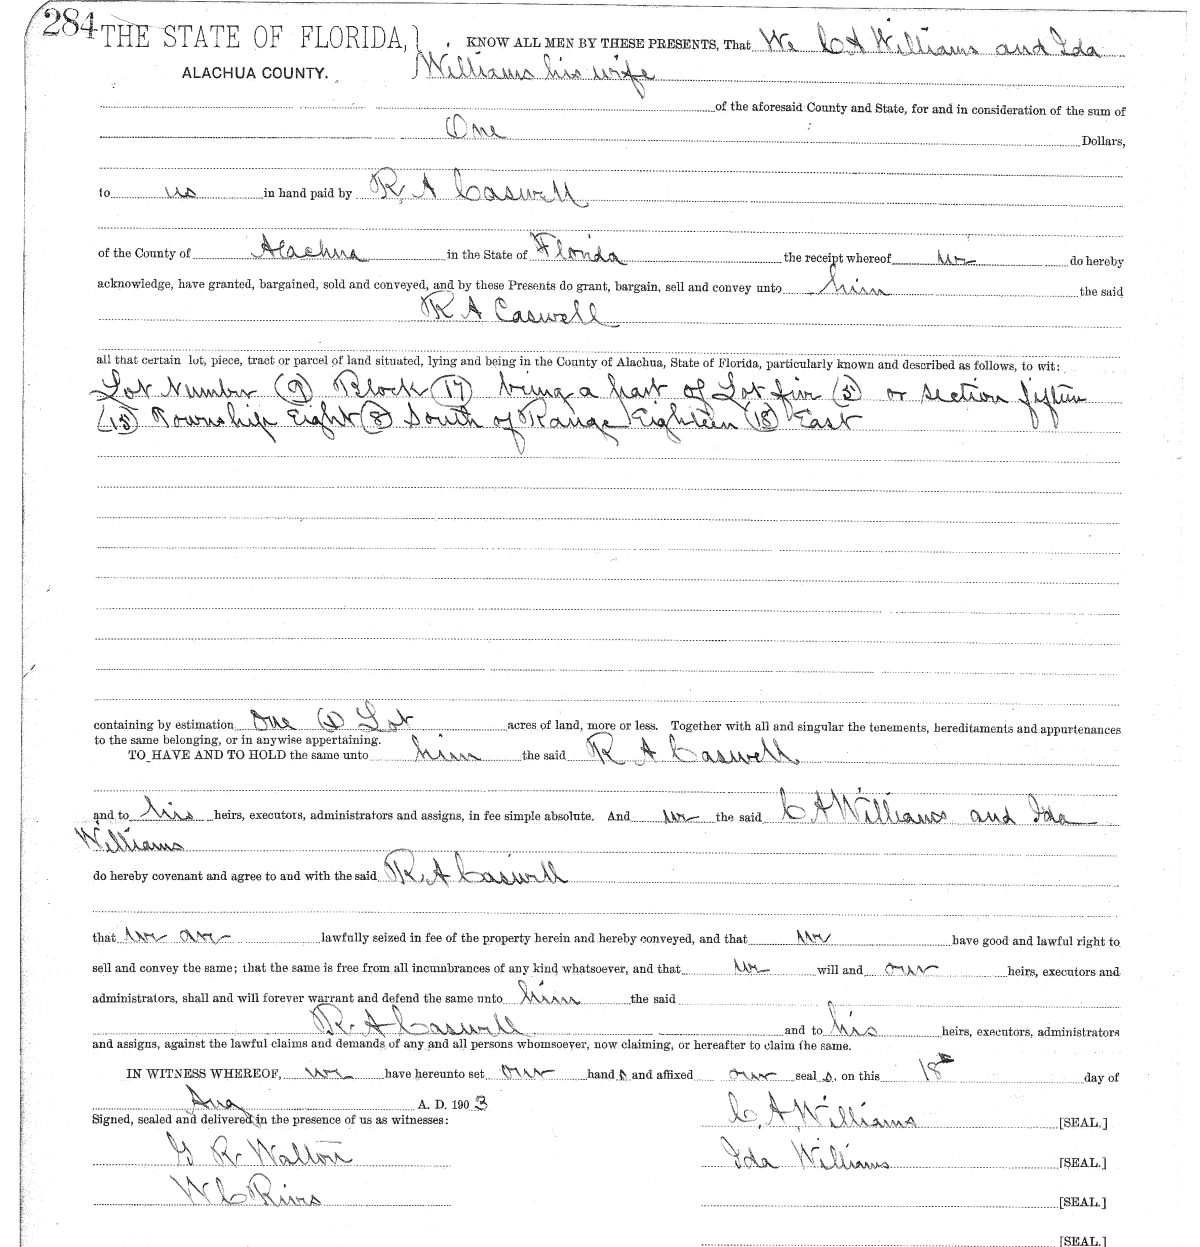 284
THE STATE OF FLORIDA,} KNOW ALL MEN BY THESE PRESENTS, That We C A Williams and Ida
ALACHUA COUNTY. Williams his wife
of the aforesaid County and State, for and in consideration of the sum of
One Dollars,
to us in hand paid by R. A Caswell
of the County of Alachua in the State of Florida the receipt whereof we do hereby
acknowledge, have granted, bargained, sold and conveyed, and by these Presents do grant, bargain, sell and convey unto him the said
R A Caswell
all that certain lot, piece, tract or parcel of land situated, lying and being in the County of Alachua, State of Florida, particularly known and described as follows, to wit:
Lot Number (9) Block (17) being a part of Lot five (5) or section fifteen
(15) Township Eight (8) South of Range Eighteen (18) East
containing by estimation One (1) Lot acres of land, more or less. Together with all and singular the tenements, hereditaments and appurtenances
to the same belonging, or in anywise appertaining.
TO HAVE AND TO HOLD the same unto him the said R A Caswell
and to his heirs, executors, administrators and assigns, in fee simple absolute. And we the said C A Williams and Ida
Williams
do hereby covenant and agree to and with the said R. A Caswell
that we are lawfully seized in fee of the property herein and hereby conveyed, and that we have good and lawful right to
sell and convey the same; that the same is free from all incumbrances of any kind whatsoever, and that we will and our heirs, executors and
administrators, shall and will forever warrant and defend the same unto him the said
R. A Caswell and to his heirs, executors, administrators
and assigns, against the lawful claims and demands of any and all persons whomsoever, now claiming, or hereafter to claim the same.
IN WITNESS WHEREOF, we have hereunto set our hand s and affixed our seal s. on this 18th day of
Aug A. D. 190 3
Signed, sealed and delivered in the presence of us as witnesses: C. A. Williams [SEAL.]
G R. Walton Ida Williams [SEAL.]
W C Rivers [SEAL.]
[SEAL.]